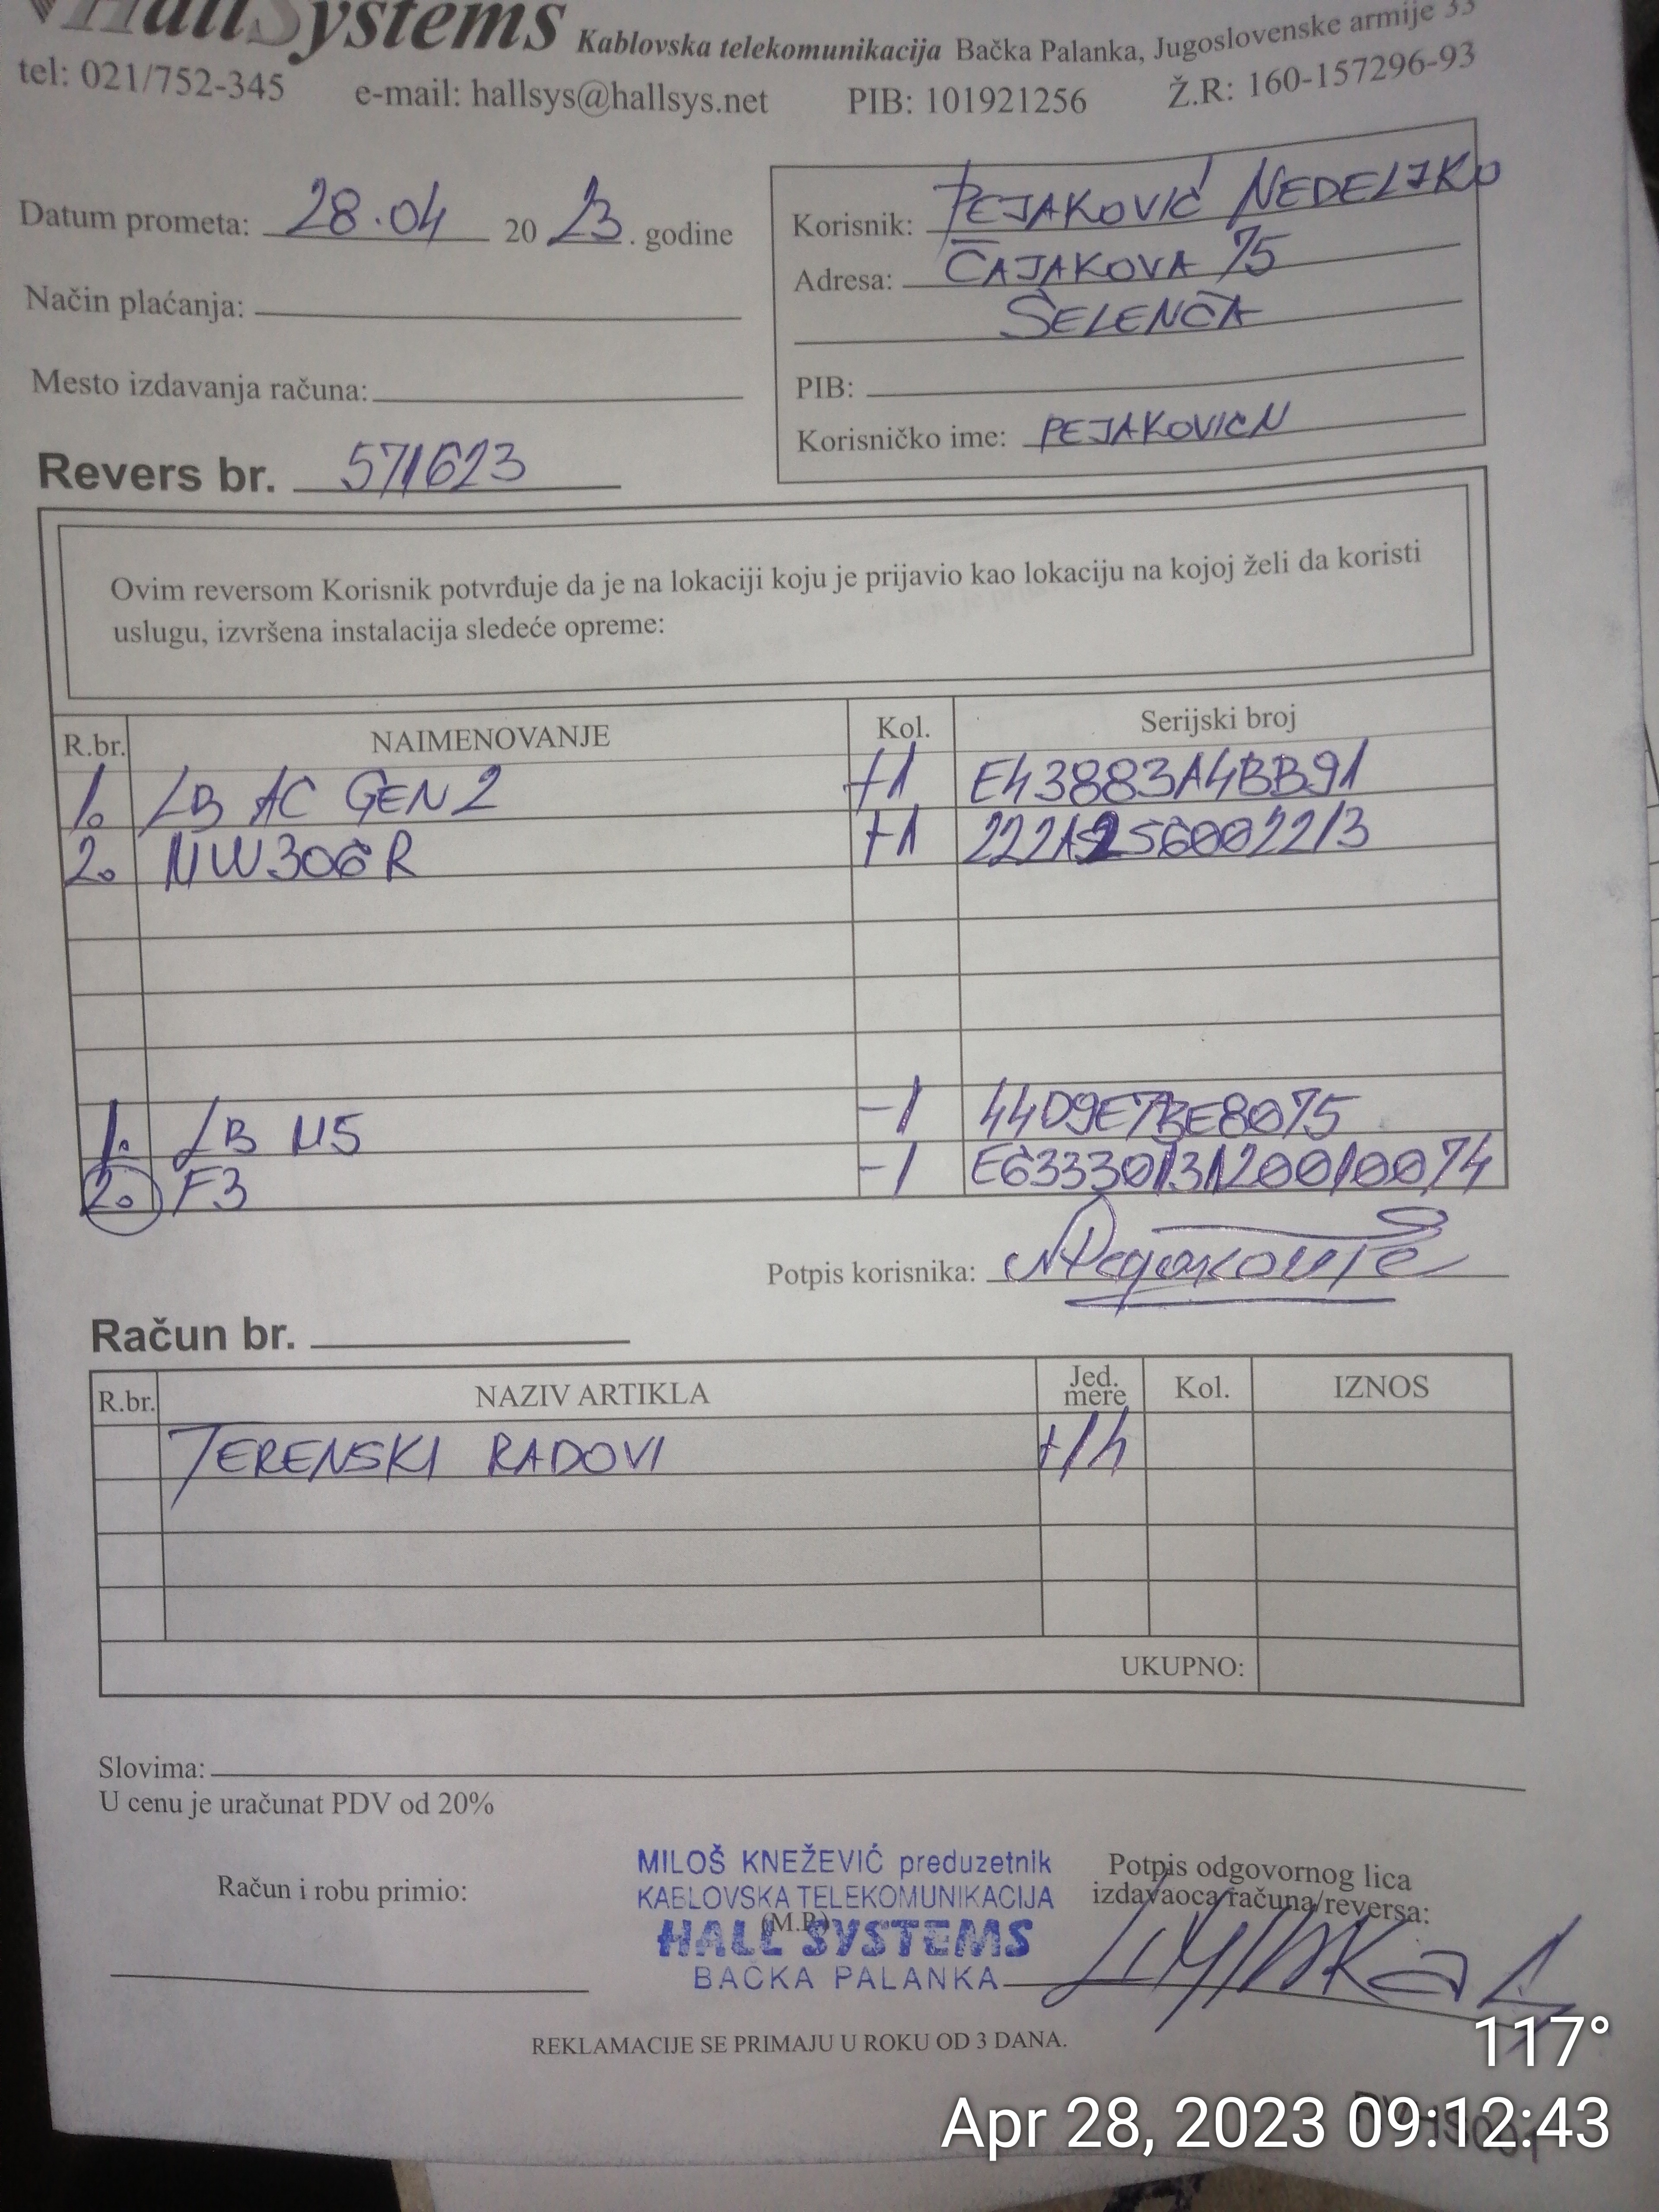 HallSystems Kablovska telekomunikacija Bačka Palanka, Jugoslovenske armije 33
tel: 021/752-345 e-mail: hallsys@hallsys.net PIB: 101921256 Ž.R: 160-157296-93
Datum prometa: 28.04 2023. godine
Način plaćanja:
Mesto izdavanja računa:
Revers br. 571623
Korisnik: PEJAKOVIĆ NEDELJKO
Adresa: ČAJAKOVA 75
SELENČA
PIB:
Korisničko ime: PEJAKOVICN
Ovim reversom Korisnik potvrđuje da je na lokaciji koju je prijavio kao lokaciju na kojoj želi da koristi
uslugu, izvršena instalacija sledeće opreme:
R.br. NAIMENOVANJE Kol. Serijski broj
1. LB AC GEN2 +1 E43883A4BB91
2. NW306R +1
1. LB M5 -1 44D9E7BE8075
2. F3 -1 E6333013120010074
Potpis korisnika: NPejaković
Račun br.
R.br. NAZIV ARTIKLA Jed. mere Kol. IZNOS
TERENSKI RADOVI +1h
UKUPNO:
Slovima:
U cenu je uračunat PDV od 20%
Račun i robu primio:
MILOŠ KNEŽEVIĆ preduzetnik
KABLOVSKA TELEKOMUNIKACIJA
(M.P.)
HALL SYSTEMS
BAČKA PALANKA
Potpis odgovornog lica
izdavaoca računa/reversa:
REKLAMACIJE SE PRIMAJU U ROKU OD 3 DANA.
117°
Apr 28, 2023 09:12:43